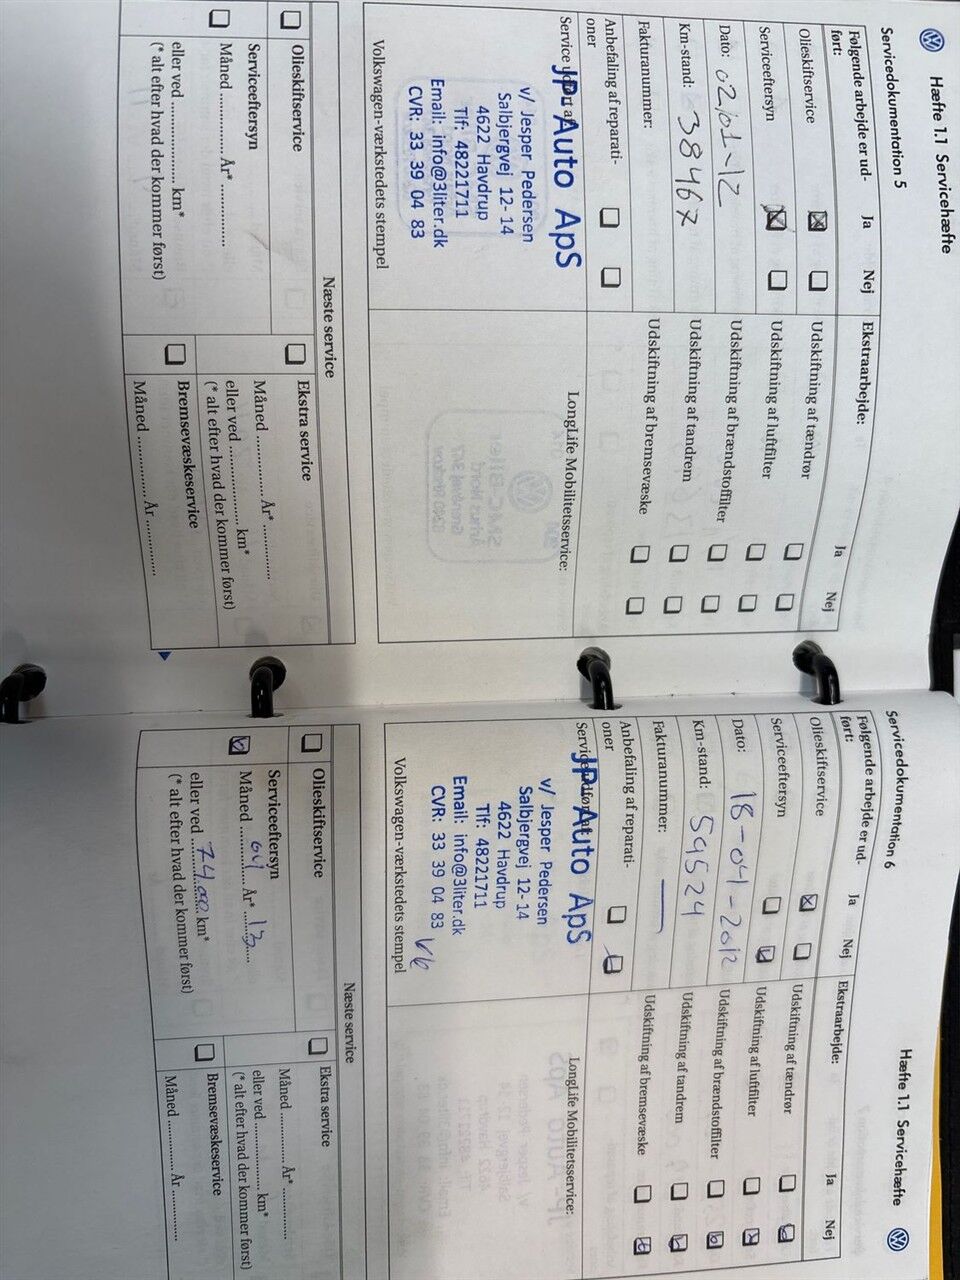 Hæfte 1.1 Servicehæfte
Servicedokumentation 5
Følgende arbejde er ud-
ført:
Ja
Nej
Ekstraarbejde:
Ja
Nej
Olieskiftservice
Udskiftning af tændrør
Serviceeftersyn
Udskiftning af luftfilter
Dato: 02/01-12
Udskiftning af brændstoffilter
Km-stand: 38467
Udskiftning af tandrem
Fakturanummer:
Udskiftning af bremsevæske
Anbefaling af reparati-
oner
LongLife Mobilitetsservice:
JP Auto ApS
v/ Jesper Pedersen
Salbjergvej 12-14
4622 Havdrup
Tlf: 48221711
Email: info@3liter.dk
CVR: 33 39 04 83
Volkswagen-værkstedets stempel
Næste service
Olieskiftservice
Serviceeftersyn
Måned ............ År* ............
eller ved ............ km*
(* alt efter hvad der kommer først)
Ekstra service
Måned ............ År* ............
eller ved ............ km*
(* alt efter hvad der kommer først)
Bremsevæskeservice
Måned ............ År ............
Hæfte 1.1 Servicehæfte
Servicedokumentation 6
Følgende arbejde er ud-
ført:
Ja
Nej
Ekstraarbejde:
Ja
Nej
Olieskiftservice
Udskiftning af tændrør
Serviceeftersyn
Udskiftning af luftfilter
Dato: 18-04-2012
Udskiftning af brændstoffilter
Km-stand: 59524
Udskiftning af tandrem
Fakturanummer:
Udskiftning af bremsevæske
Anbefaling af reparati-
oner
LongLife Mobilitetsservice:
JP Auto ApS
v/ Jesper Pedersen
Salbjergvej 12-14
4622 Havdrup
Tlf: 48221711
Email: info@3liter.dk
CVR: 33 39 04 83
Volkswagen-værkstedets stempel
Næste service
Olieskiftservice
Serviceeftersyn
Måned 04 År* 13
eller ved 74.000 km*
(* alt efter hvad der kommer først)
Ekstra service
Måned ............ År* ............
eller ved ............ km*
(* alt efter hvad der kommer først)
Bremsevæskeservice
Måned ............ År ............